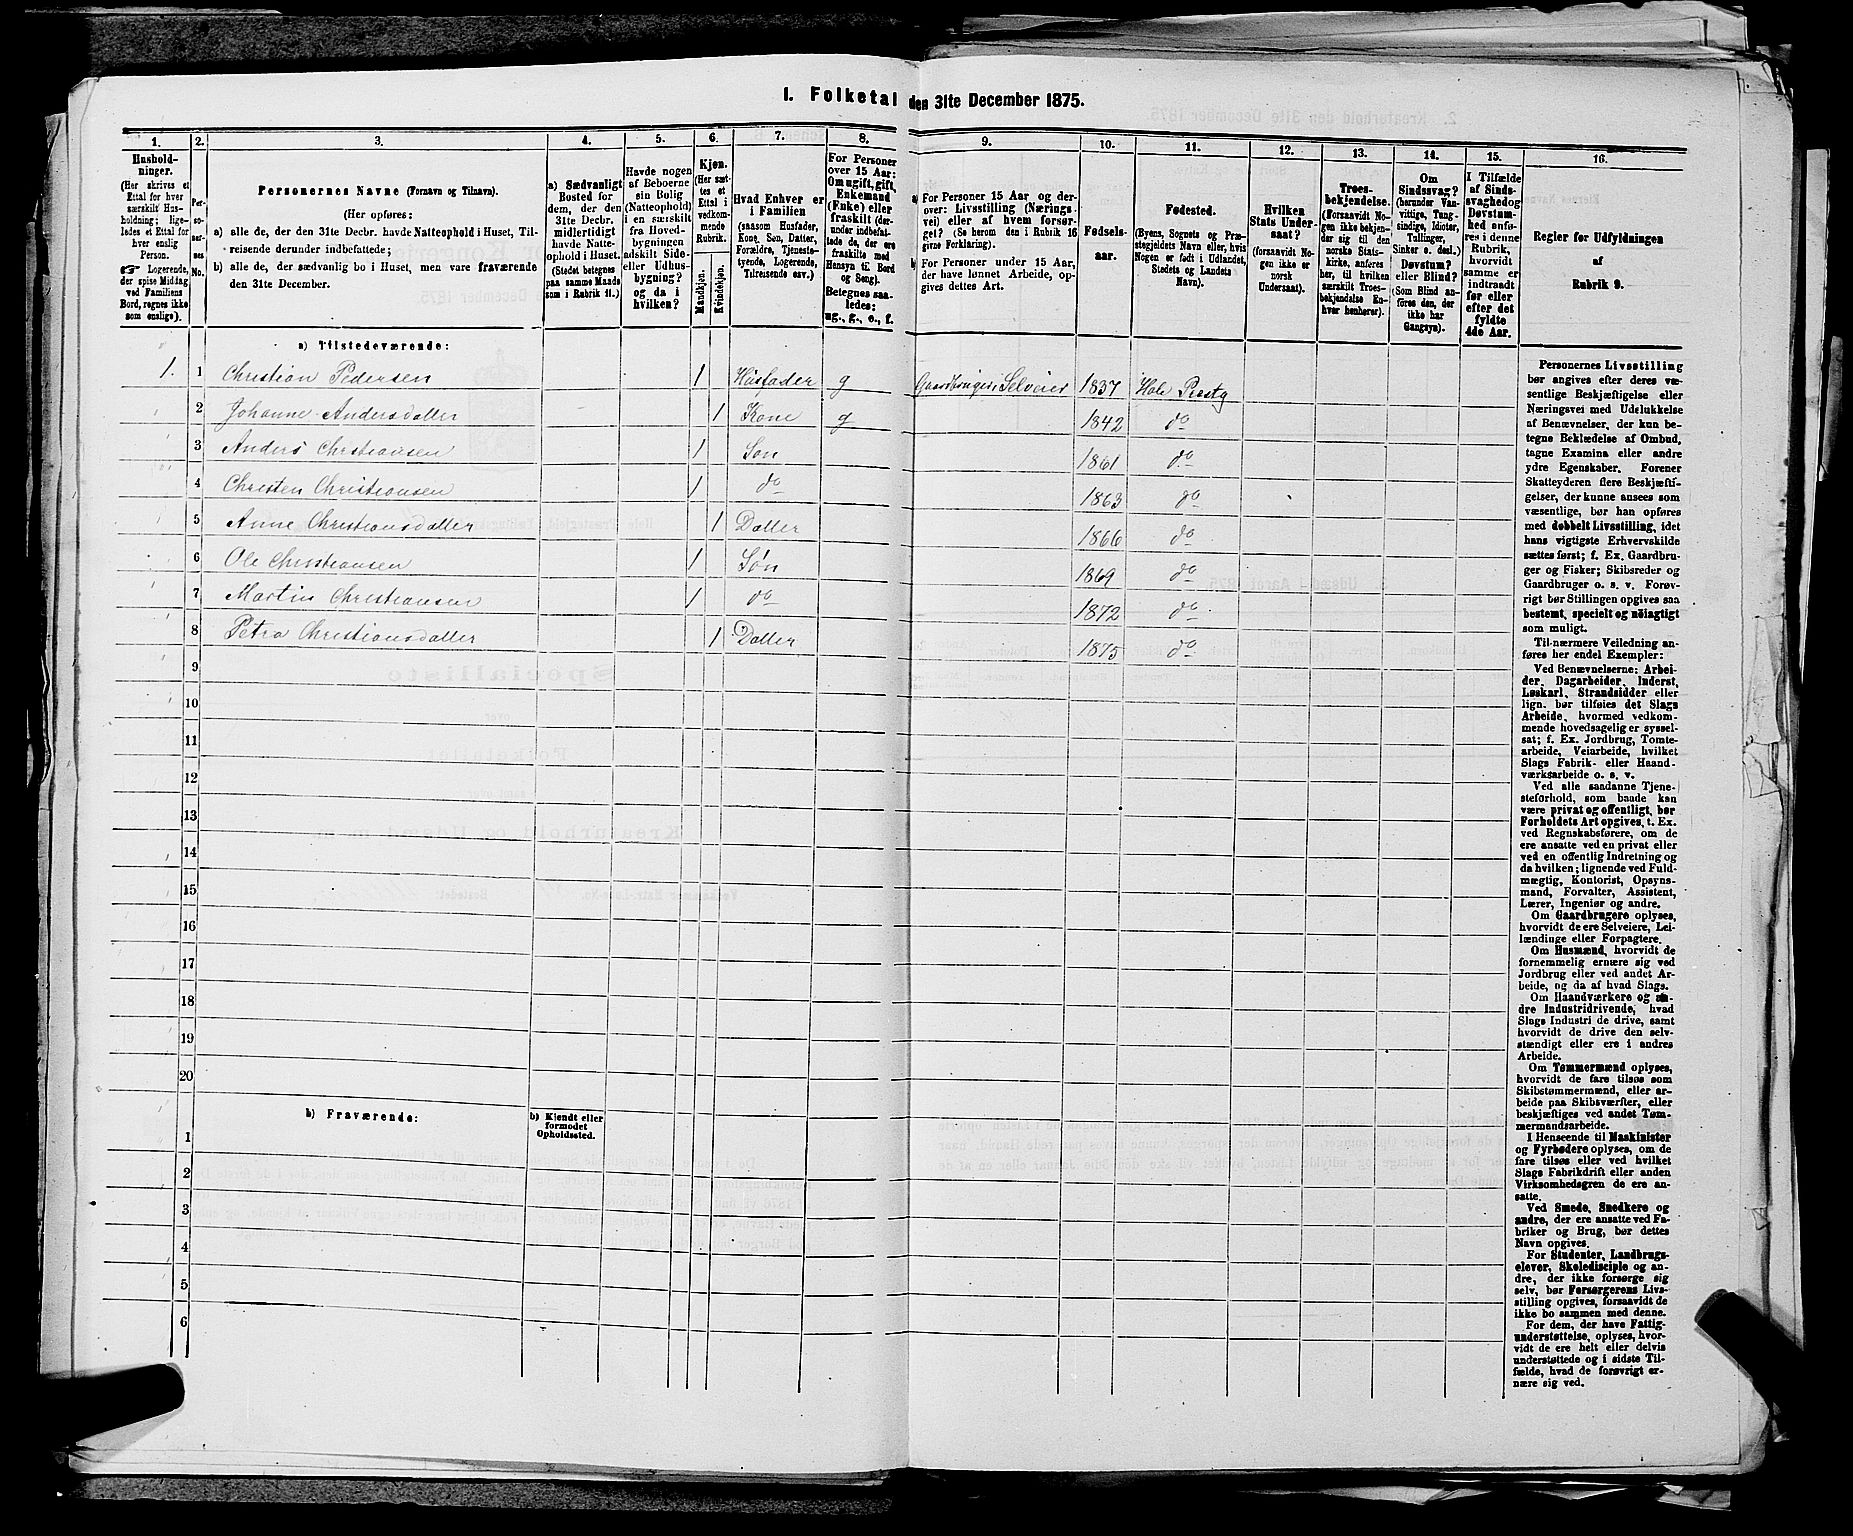 1. Folketal den 31te December 1875.
1. 2. 3. 4. 5. 6. 7. 8. 9. 10. 11. 12. 13. 14. 15. 16.
Hushold-
ninger.
(Her skrives et
Ettal for hver
særskilt Hus-
holdning; lige-
ledes et Ettal for
hver enslig
Person.
☞ Logerende,
der spise Middag
ved Familiens
Bord, regnes ikke
som enslige).
Per-
so-
ner-
nes
No.
Personernes Navne (Fornavn og Tilnavn).
(Her opføres:
a) alle de, der den 31te Decbr. havde Natteophold i Huset, Til-
reisende derunder indbefattede;
b) alle de, der sædvanlig bo i Huset, men vare fraværende
den 31te December.
a) Sædvanligt
Bosted for
dem, der den
31te Decbr.
midlertidigt
havde Natte-
ophold i Huset.
(Stedet betegnes
paa samme Maade
som i Rubrik 11.)
Havde nogen
af Beboerne
sin Bolig
(Natteophold)
i en særskilt
fra Hoved-
bygningen
adskilt Side-
eller Udhus-
bygning?
og da i
hvilken?
Kjøn.
(Her sæt-
tes et
Ettal i
vedkom-
mende
Rubrik.
Mandkjøn.
Kvindekjøn.
Hvad Enhver er
i Familien
(saasom Husfader,
Kone, Søn, Datter,
Forældre, Tjeneste-
tyende, Logerende,
Tilreisende osv.)
For Personer
over 15 Aar:
Om ugift, gift,
Enkemand
(Enke) eller
fraskilt (der-
under indbefat-
tede de, der ere
fraskilte med
Hensyn til Bord
og Seng).
Betegnes saa-
ledes:
ug., g., e., f.
a) For Personer 15 Aar og der-
over: Livsstilling (Nærings-
vei) eller af hvem forsør-
get? (Se herom den i Rubrik 16
givne Forklaring).
b) For Personer under 15 Aar,
der have lønnet Arbeide, op-
gives dettes Art.
Fødsels-
aar.
Fødested.
(Byens, Sognets og Præ-
stegjeldets Navn eller, hvis
Nogen er født i Udlandet,
Stedets og Landets
Navn).
Hvilken
Stats Under-
saat?
(forsaavidt No-
gen ikke er
norsk
Undersaat).
Troes-
bekjendelse.
(Forsaavidt No-
gen ikke bekjen-
der sig til den
norske Stats-
kirke, anføres
her, til hvilken
særskilt Troes-
bekjendelse En-
hver henhører).
Om
Sindssvag?
(herunder Van-
vittige, Tung-
sindige, Idioter,
Tullinger,
Sinker o. desl.)
Døvstum?
eller Blind?
(Som Blind an-
føres den, der
ikke har
Gangsyn).
I Tilfælde
af Sinds-
svaghed og
Døvstum-
hed anfø-
res i denne
Rubrik,
hvorvidt
samme er
indtraadt
før eller
efter det
fyldte
4de Aar.
Regler for Udfyldningen
af
Rubrik 9.
a) Tilstedeværende:
1. 1 Christian Pedersen 1 Husfader g Gaardbruger, Selveier 1837 Hole Prestg
2 Johanne Andersdatter 1 Kone g 1842 do
3 Anders Christiansen 1 Søn 1861 do
4 Christen Christiansen 1 do 1863 do
5 Anne Christiansdatter 1 Datter 1866 do
6 Ole Christiansen 1 Søn 1869 do
7 Martin Christiansen 1 do 1872 do
8 Petra Christiansdatter 1 Datter 1875 do
9
10
11
12
13
14
15
16
17
18
19
20
b) Fraværende:
b) Kjendt eller
formodet
Opholdssted.
1
2
3
4
5
6
Personernes Livsstilling
bør angives efter deres væ-
sentlige Beskjæftigelse eller
Næringsvei med Udelukkelse
af Benævnelser, der kun be-
tegne Beklædelse af Ombud,
tagne Examina eller andre
ydre Egenskaber. Forener
Skatteyderen flere Beskjæfti-
gelser, der kunne ansees som
væsentlige, bør han opføres
med dobbelt Livsstilling, idet
hans vigtigste Erhvervskilde
sættes først; f. Ex. Gaardbru-
ger og Fisker; Skibsreder og
Gaardbruger o. s. v. Forøv-
rigt bør Stillingen opgives saa
bestemt, specielt og nøiagtigt
som muligt.
Til nærmere Veiledning an-
føres her endel Exempler:
Ved Benævnelserne: Arbei-
der, Dagarbeider, Inderst,
Løskarl, Strandsidder eller
lign. bør tilføies det Slags
Arbeide, hvormed vedkom-
mende hovedsagelig er syssel-
sat; f. Ex. Jordbrug, Tomte-
arbeide, Veiarbeide, hvilket
Slags Fabrik- eller Haand-
værksarbeide o. s. v.
Ved alle saadanne Tjene-
steforhold, som baade kan
være privat og offentligt, bør
Forholdets Art opgives, t. Ex.
ved Regnskabsførere, om de
ere ansatte ved en privat eller
ved en offentlig Indretning og
da hvilken; lignende ved Fuld-
mægtig, Kontorist, Opsyns-
mand, Forvalter, Assistent,
Lærer, Ingeniør og andre.
Om Gaardbrugere oplyses,
hvorvidt de ere Selveiere, Lei-
lændinge eller Forpagtere.
Om Husmænd, hvorvidt de
fornemmelig ernære sig ved
Jordbrug eller ved andet Ar-
beide, og da af hvad Slags.
Om Haandværkere og an-
dre Industridrivende, hvad
Slags Industri de drive, samt
hvorvidt de drive den selv-
stændigt eller ere i andres
Arbeide.
Om Tømmermænd oplyses,
hvorvidt de fare tilsøs som
Skibstømmermænd, eller ar-
beide paa Skibsværfter, eller
beskjæftiges ved andet Tøm-
mermandsarbeide.
I Henseende til Maskinister
og Fyrbødere oplyses, om de
fare tilsøs eller ved hvilket
Slags Fabrikdrift eller anden
Virksomhedsgren de ere an-
satte.
Ved Smede, Snedkere og
andre, der ere ansatte ved Fa-
briker og Brug, bør dettes
Navn opgives.
For Studenter, Landbrugs-
elever, Skoledisciple og an-
dre, der ikke forsørge sig
selv, bør Forsørgerens Livs-
stilling opgives, forsaavidt de
ikke bo sammen med denne.
For dem, der have Fattig-
understøttelse, oplyses, hvor-
vidt de ere helt eller delvis
understøttede og i sidste Til-
fælde, hvad de forøvrigt er-
nære sig ved.